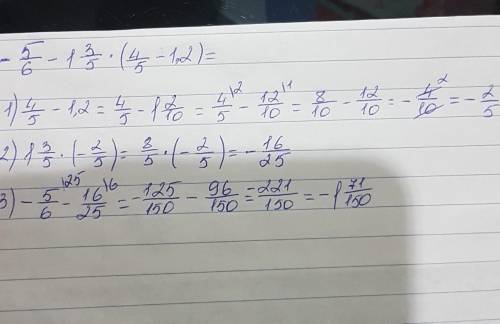 - 5/6 - 1 3/5 · (4/5 - 1,2) =
1) 4/5 - 1,2 = 4/5 - 1 2/10 = 4/5 \2 - 12/10 \1 = 8/10 - 12/10 = - 4/10 2 = - 2/5
2) 1 3/5 · (- 2/5) = 8/5 · (- 2/5) = - 16/25
3) - 5/6 \25 - 16/25 \6 = - 125/150 - 96/150 = 221/150 = - 1 71/150